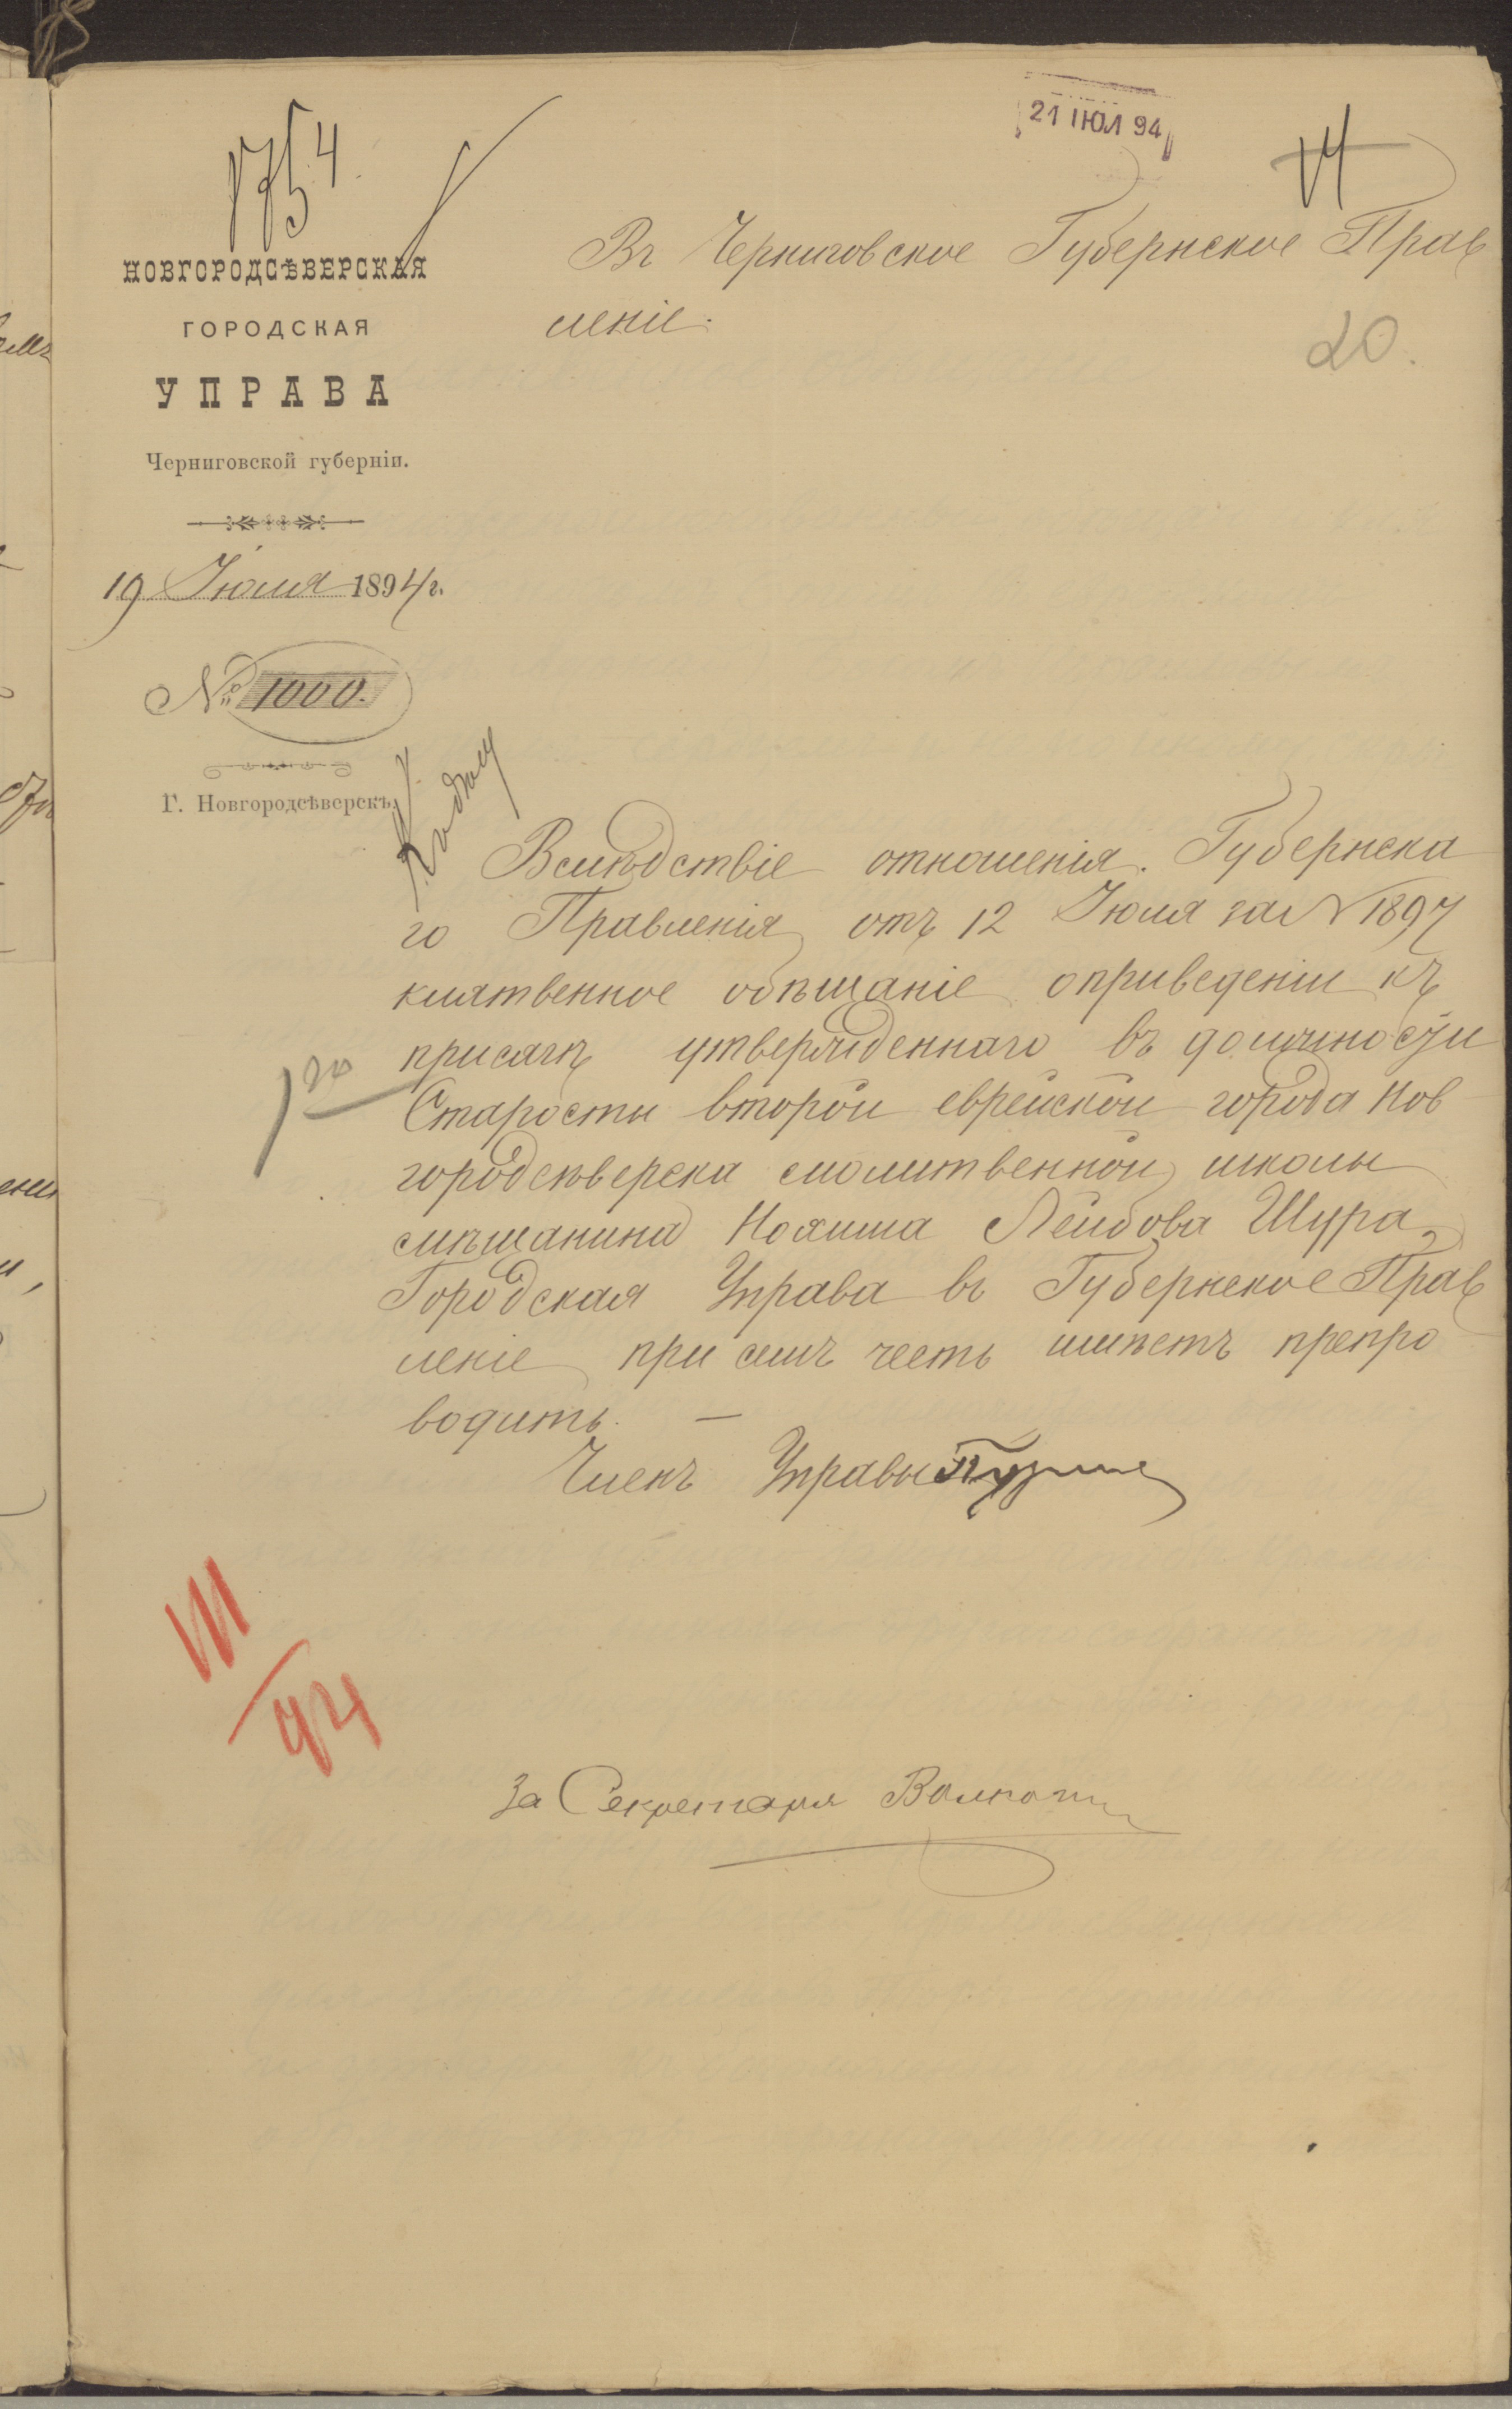 21 ІЮЛ 94
1754
14
НОВГОРОДСѢВЕРСКАЯ
ГОРОДСКАЯ
УПРАВА
Черниговской губерніи.
19 Іюля 1894 г.
№ 1000.
Г. Новгородсѣверскъ.
Въ Черниговское Губернское Прав
леніе.
20.
Вслѣдствіе отношенія Губернска
го Правленія отъ 12 Іюля за № 1897
клятвенное обѣщаніе о приведеніи къ
присягѣ утвержденнаго въ должности
Старосты второй еврейской города Нов
городсѣверска молитвенной школы
мѣщанина Нохима Лейбова Шура,
Городская Управа въ Губернское Прав
леніе при семъ честь имѣетъ препро
водить. —
Членъ Управы
III
94
За Секретаря